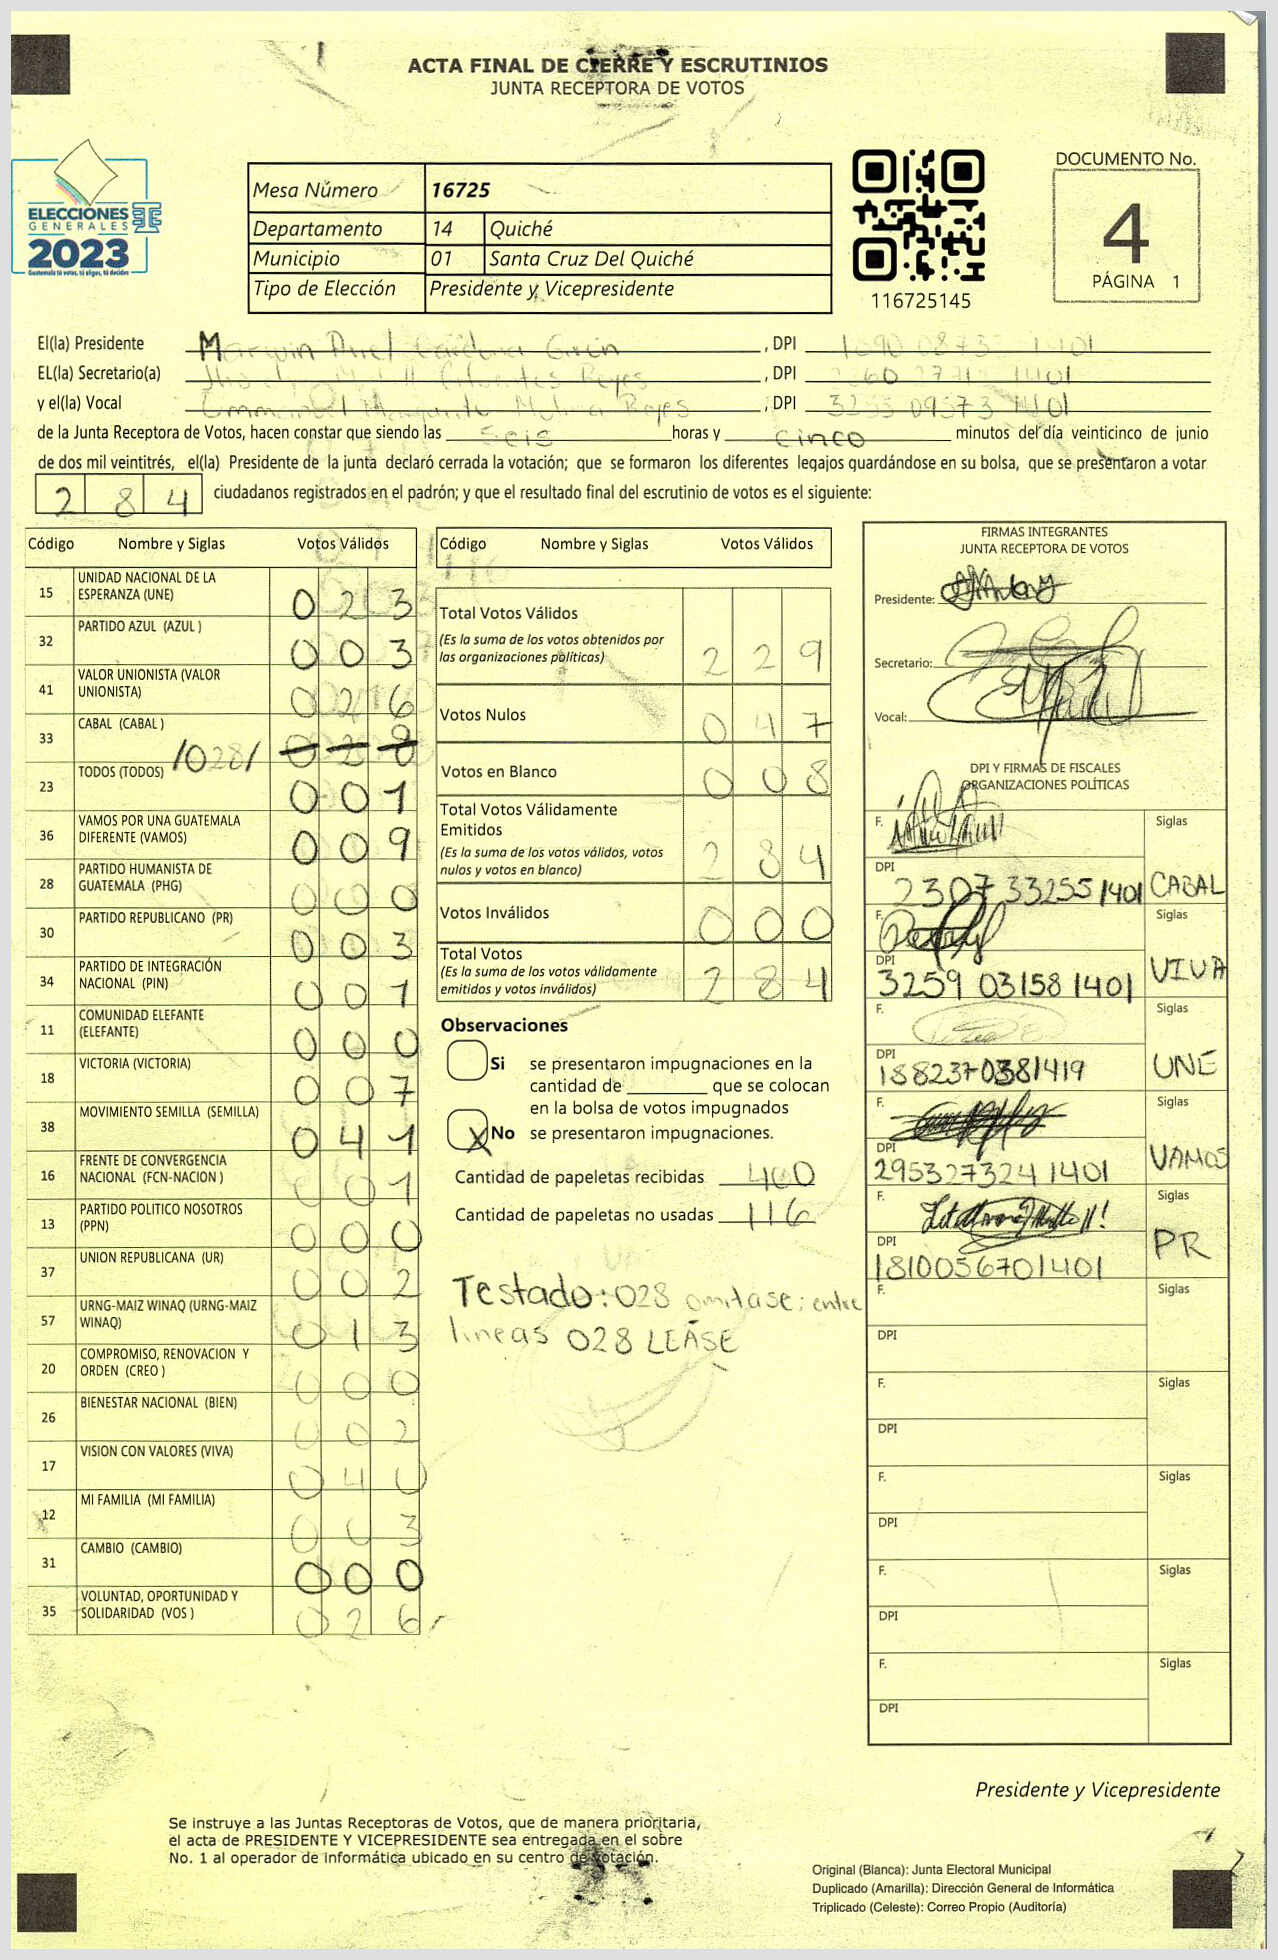 ACTA FINAL DE CIERRE Y ESCRUTINIOS
JUNTA RECEPTORA DE VOTOS
ELECCIONES
GENERALES
2023
Guatemala tú votas, tú eliges, tú decides
Mesa Número 16725
Departamento 14 Quiché
Municipio 01 Santa Cruz Del Quiché
Tipo de Elección Presidente y Vicepresidente
116725145
DOCUMENTO No.
4
PÁGINA 1
El(la) Presidente , DPI 1401
EL(la) Secretario(a) Cifuentes Reyes , DPI 1401
y el(la) Vocal Molina Reyes , DPI 3255 09573 1401
de la Junta Receptora de Votos, hacen constar que siendo las seis horas y cinco minutos del día veinticinco de junio
de dos mil veintitrés, el(la) Presidente de la junta declaró cerrada la votación; que se formaron los diferentes legajos guardándose en su bolsa, que se presentaron a votar
284 ciudadanos registrados en el padrón; y que el resultado final del escrutinio de votos es el siguiente:
Código Nombre y Siglas Votos Válidos
15 UNIDAD NACIONAL DE LA ESPERANZA (UNE) 023
32 PARTIDO AZUL (AZUL ) 003
41 VALOR UNIONISTA (VALOR UNIONISTA) 026
33 CABAL (CABAL ) /028/ 028
23 TODOS (TODOS) 001
36 VAMOS POR UNA GUATEMALA DIFERENTE (VAMOS) 009
28 PARTIDO HUMANISTA DE GUATEMALA (PHG) 000
30 PARTIDO REPUBLICANO (PR) 003
34 PARTIDO DE INTEGRACIÓN NACIONAL (PIN) 001
11 COMUNIDAD ELEFANTE (ELEFANTE) 000
18 VICTORIA (VICTORIA) 007
38 MOVIMIENTO SEMILLA (SEMILLA) 041
16 FRENTE DE CONVERGENCIA NACIONAL (FCN-NACION ) 001
13 PARTIDO POLITICO NOSOTROS (PPN) 000
37 UNION REPUBLICANA (UR) 002
57 URNG-MAIZ WINAQ (URNG-MAIZ WINAQ) 013
20 COMPROMISO, RENOVACION Y ORDEN (CREO ) 000
26 BIENESTAR NACIONAL (BIEN) 002
17 VISION CON VALORES (VIVA) 040
12 MI FAMILIA (MI FAMILIA) 003
31 CAMBIO (CAMBIO) 000
35 VOLUNTAD, OPORTUNIDAD Y SOLIDARIDAD (VOS ) 026
Código Nombre y Siglas Votos Válidos
Total Votos Válidos 229
(Es la suma de los votos obtenidos por
las organizaciones políticas)
Votos Nulos 047
Votos en Blanco 008
Total Votos Válidamente
Emitidos 284
(Es la suma de los votos válidos, votos
nulos y votos en blanco)
Votos Inválidos 000
Total Votos 284
(Es la suma de los votos válidamente
emitidos y votos inválidos)
Observaciones
Si se presentaron impugnaciones en la
cantidad de ________ que se colocan
en la bolsa de votos impugnados
X No se presentaron impugnaciones.
Cantidad de papeletas recibidas 400
Cantidad de papeletas no usadas 116
Testado: 028 omitase; entre
lineas 028 LEASE
FIRMAS INTEGRANTES
JUNTA RECEPTORA DE VOTOS
Presidente:
Secretario:
Vocal:
DPI Y FIRMAS DE FISCALES
ORGANIZACIONES POLÍTICAS
F. Siglas
DPI 2307 33255 1401 CABAL
F. Siglas
DPI 3259 03158 1401 VIVA
F. Siglas
DPI 1882370381419 UNE
F. Siglas
DPI 295327324 1401 VAMOS
F. Siglas
DPI 1810056701401 PR
F. Siglas
DPI
F. Siglas
DPI
F. Siglas
DPI
F. Siglas
DPI
F. Siglas
DPI
Presidente y Vicepresidente
Se instruye a las Juntas Receptoras de Votos, que de manera prioritaria,
el acta de PRESIDENTE Y VICEPRESIDENTE sea entregada en el sobre
No. 1 al operador de informática ubicado en su centro de votación.
Original (Blanca): Junta Electoral Municipal
Duplicado (Amarilla): Dirección General de Informática
Triplicado (Celeste): Correo Propio (Auditoría)